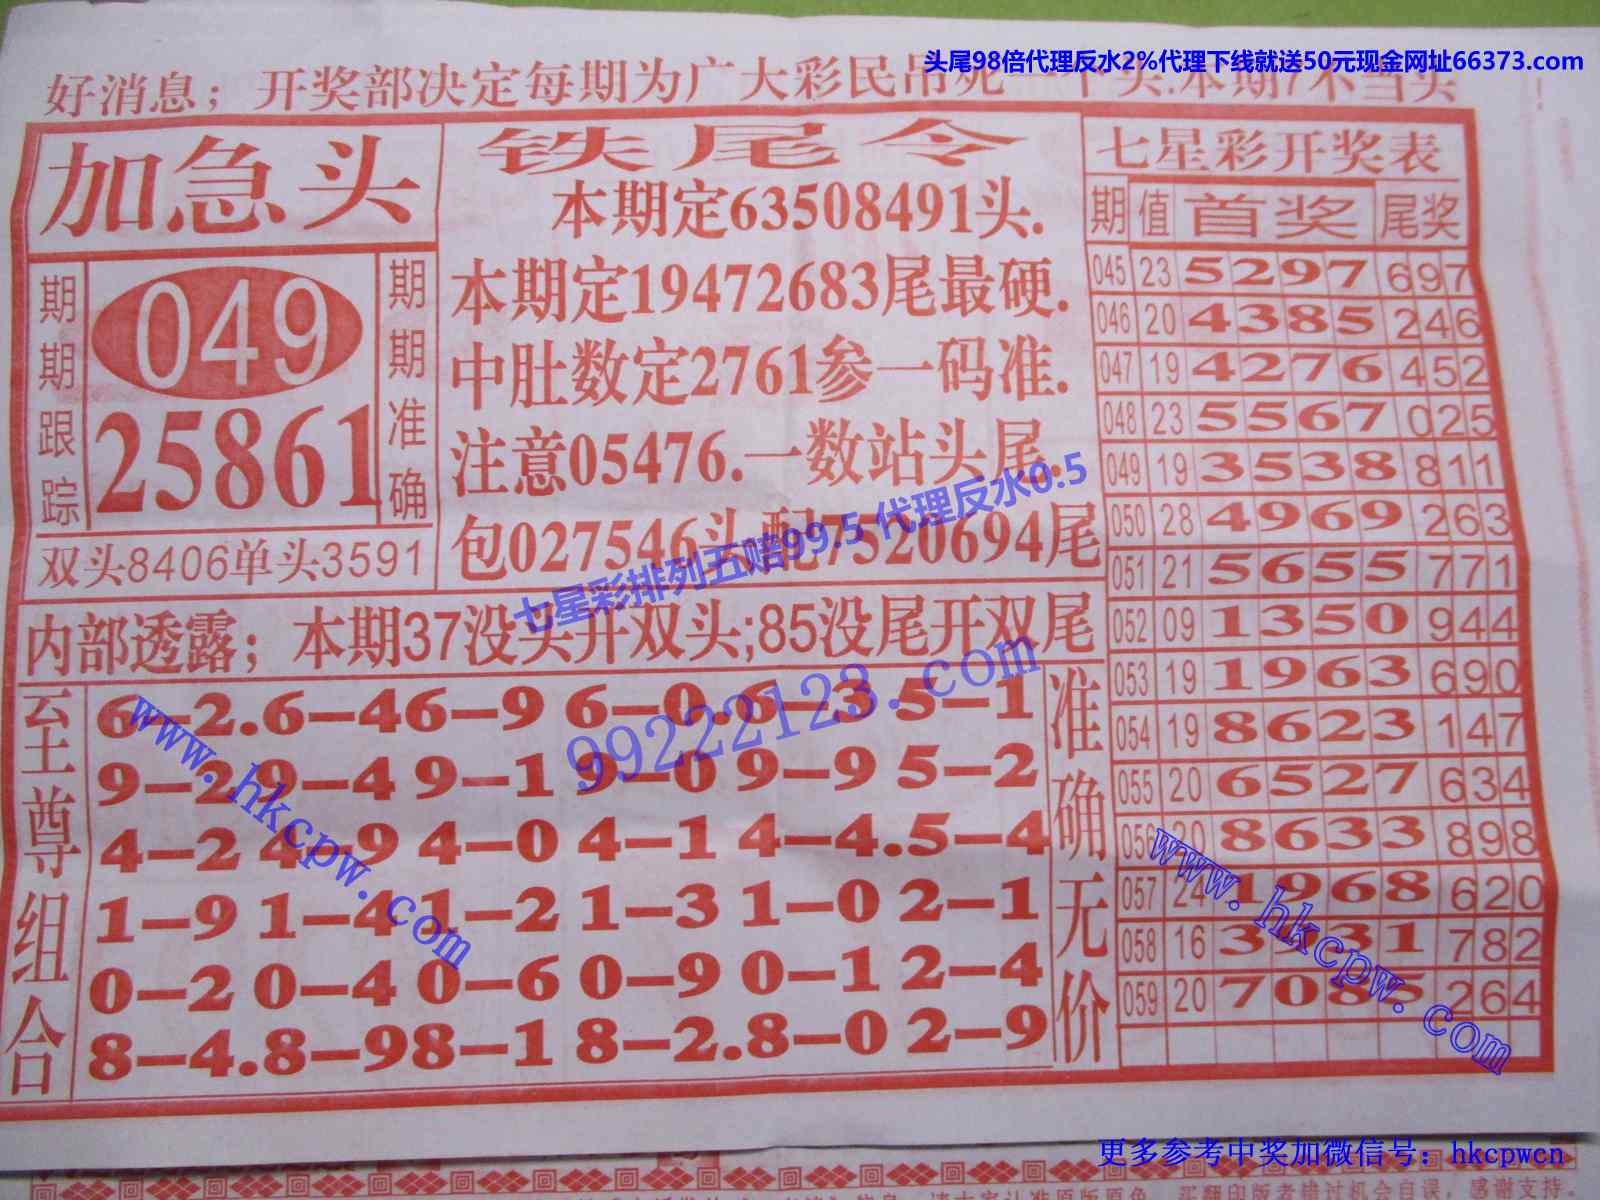 头尾98倍代理反水2%代理下线就送50元现金网址66373.com
好消息；开奖部决定每期为广大彩民吊死一个头.本期7不当头
加急头
期期跟踪
049
25861
期期准确
双头8406单头3591
铁尾令
本期定63508491头.
本期定19472683尾最硬.
中肚数定2761参一码准.
注意05476.一数站头尾.
包027546头配7520694尾
七星彩排列五赔99.5 代理反水0.5
内部透露；本期37没头开双头;85没尾开双尾
99222123.com
至尊组合
6-2.6-46-9 6-0.6-3 5-1
9-2 9-4 9-1 9-0 9-9 5-2
4-2 4-9 4-0 4-1 4-4.5-4
1-9 1-4 1-2 1-3 1-0 2-1
0-2 0-4 0-6 0-9 0-1 2-4
8-4.8-98-1 8-2.8-0 2-9
准确无价
www.hkcpw.com
七星彩开奖表
期 值 首奖 尾奖
045 23 5297 697
046 20 4385 246
047 19 4276 452
048 23 5567 025
049 19 3538 811
050 28 4969 263
051 21 5655 771
052 09 1350 944
053 19 1963 690
054 19 8623 147
055 20 6527 634
056 20 8633 898
057 24 1968 620
058 16 3931 782
059 20 7085 264
www.hkcpw.com
更多参考中奖加微信号：hkcpwcn